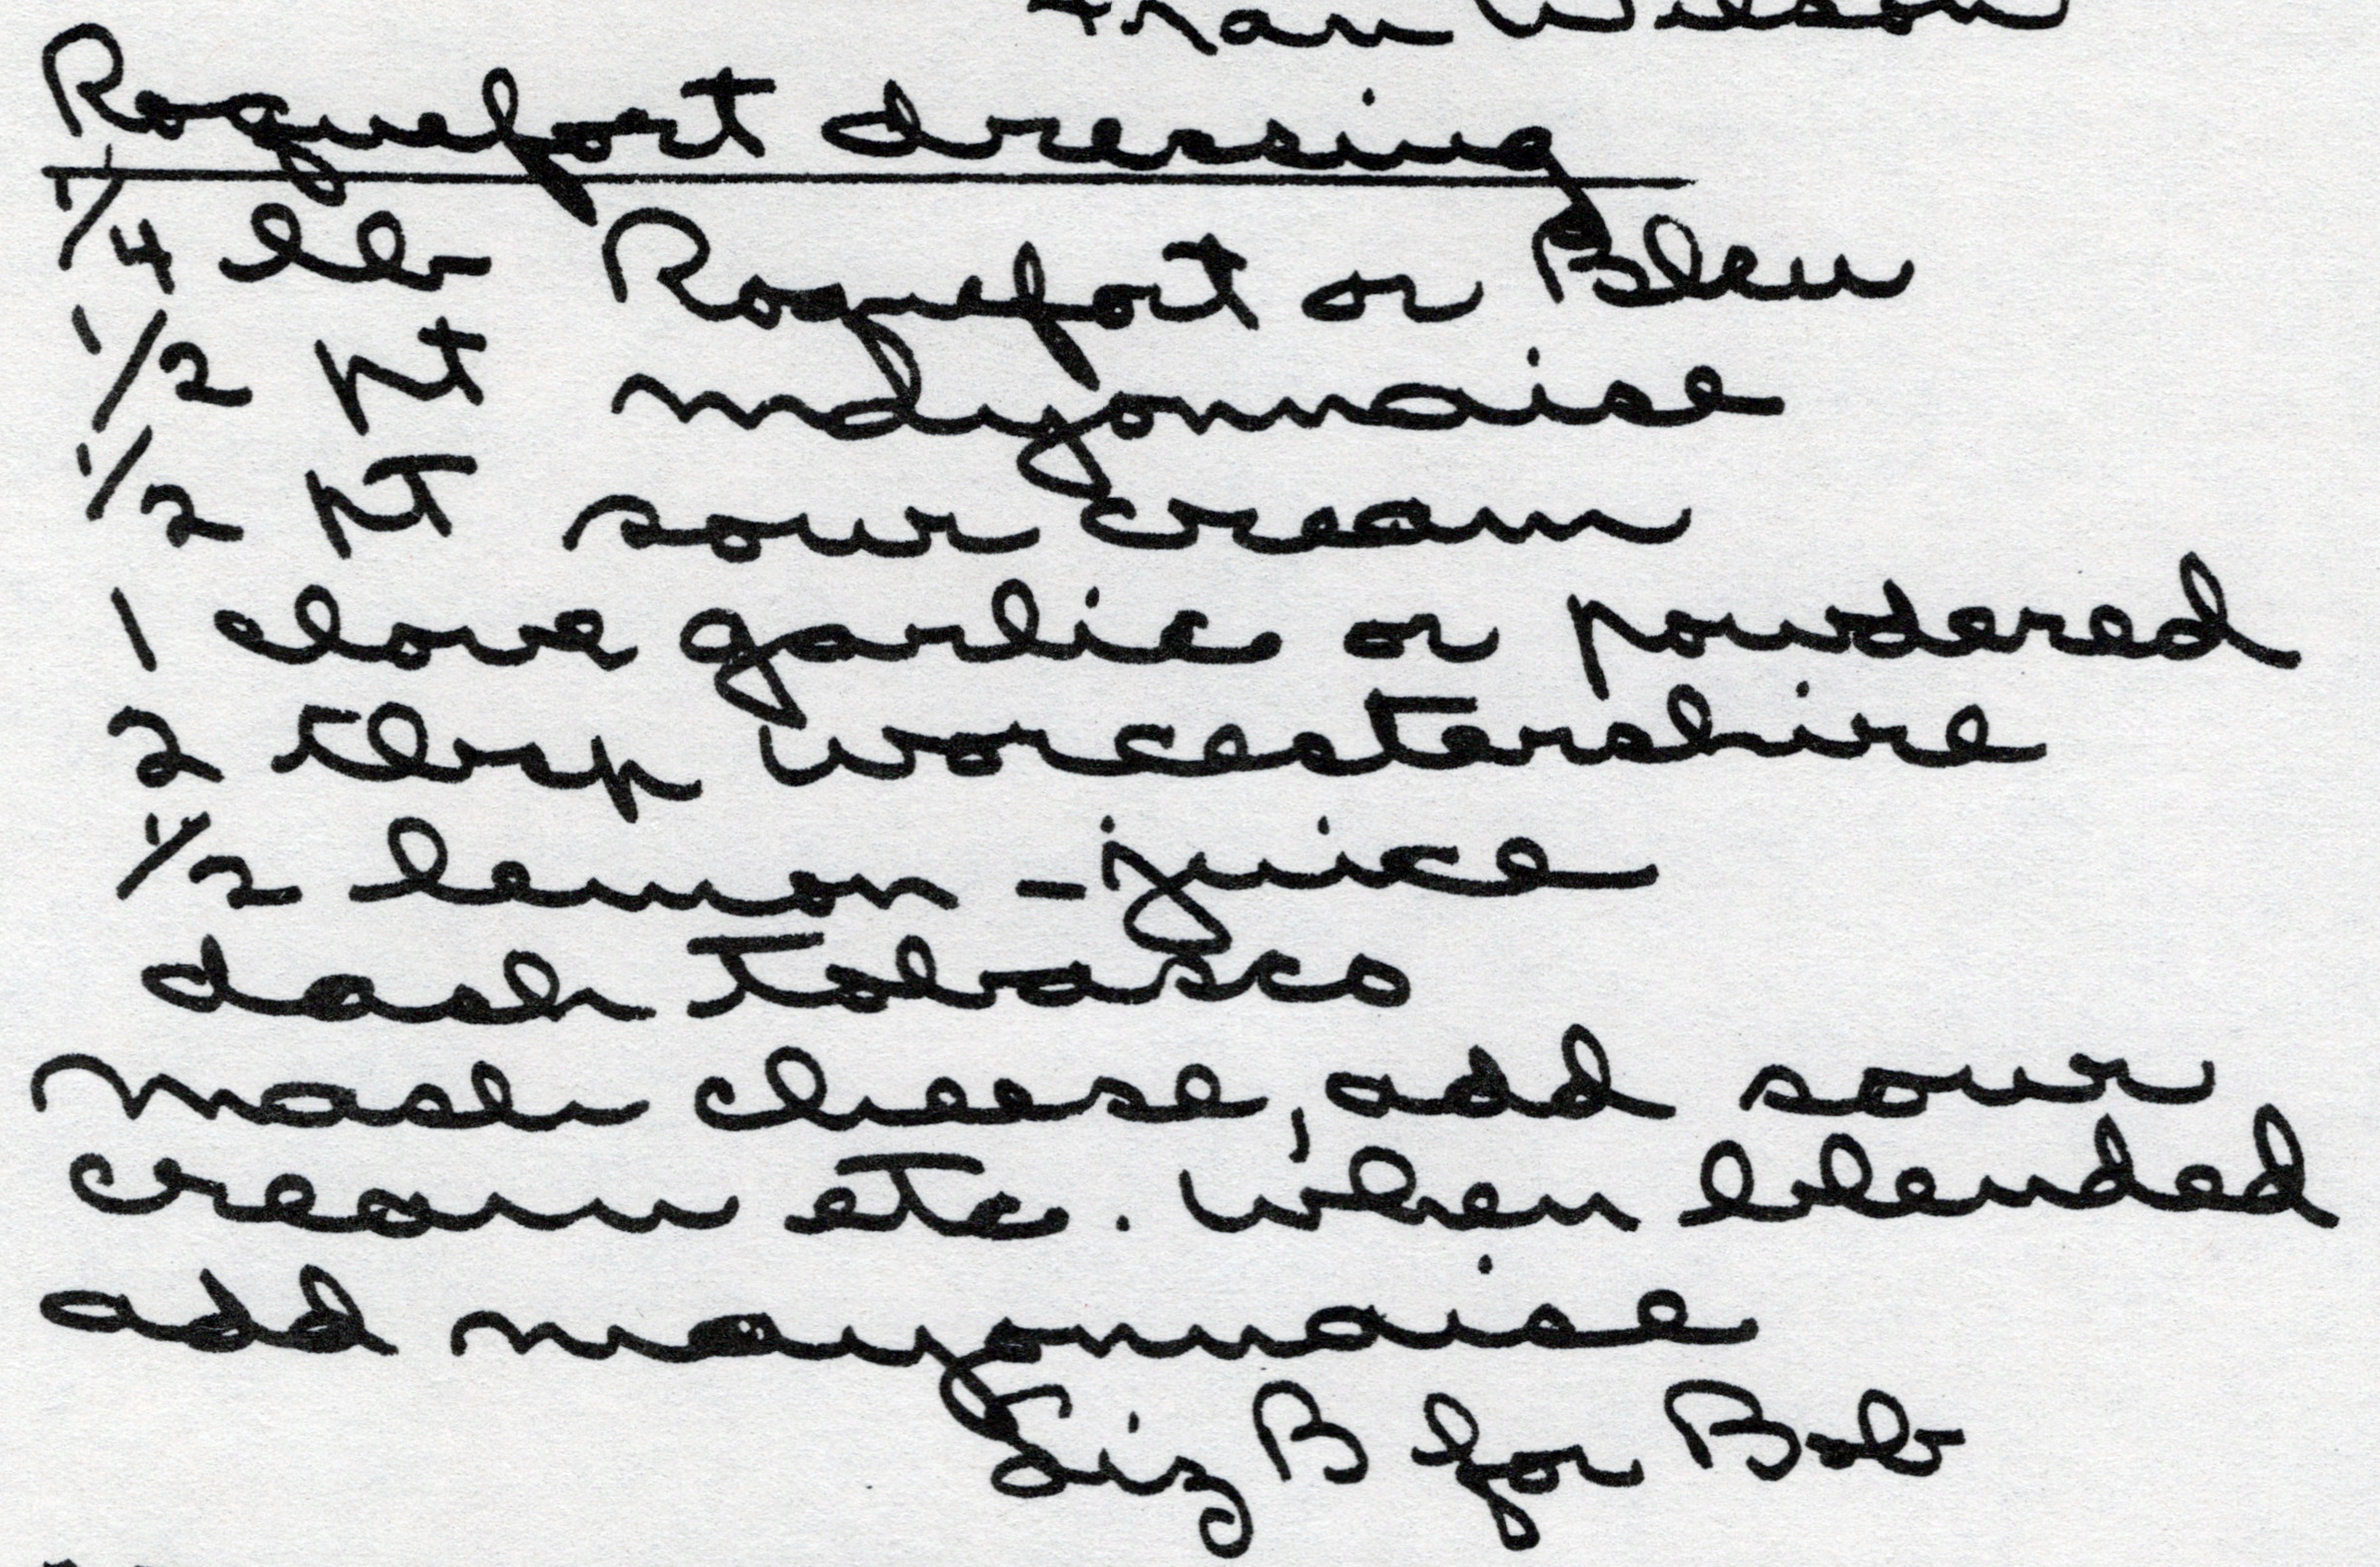 Fran Wilson
Roquefort dressing
1/4 lb Roquefort or Bleu
1/2 pt mayonnaise
1/2 pt sour cream
1 clove garlic or powdered
2 tbsp worcestershire
1/2 lemon - juice
dash Tobasco
Mash cheese, add sour
cream etc. When blended
add mayonnaise
Liz B for Bob